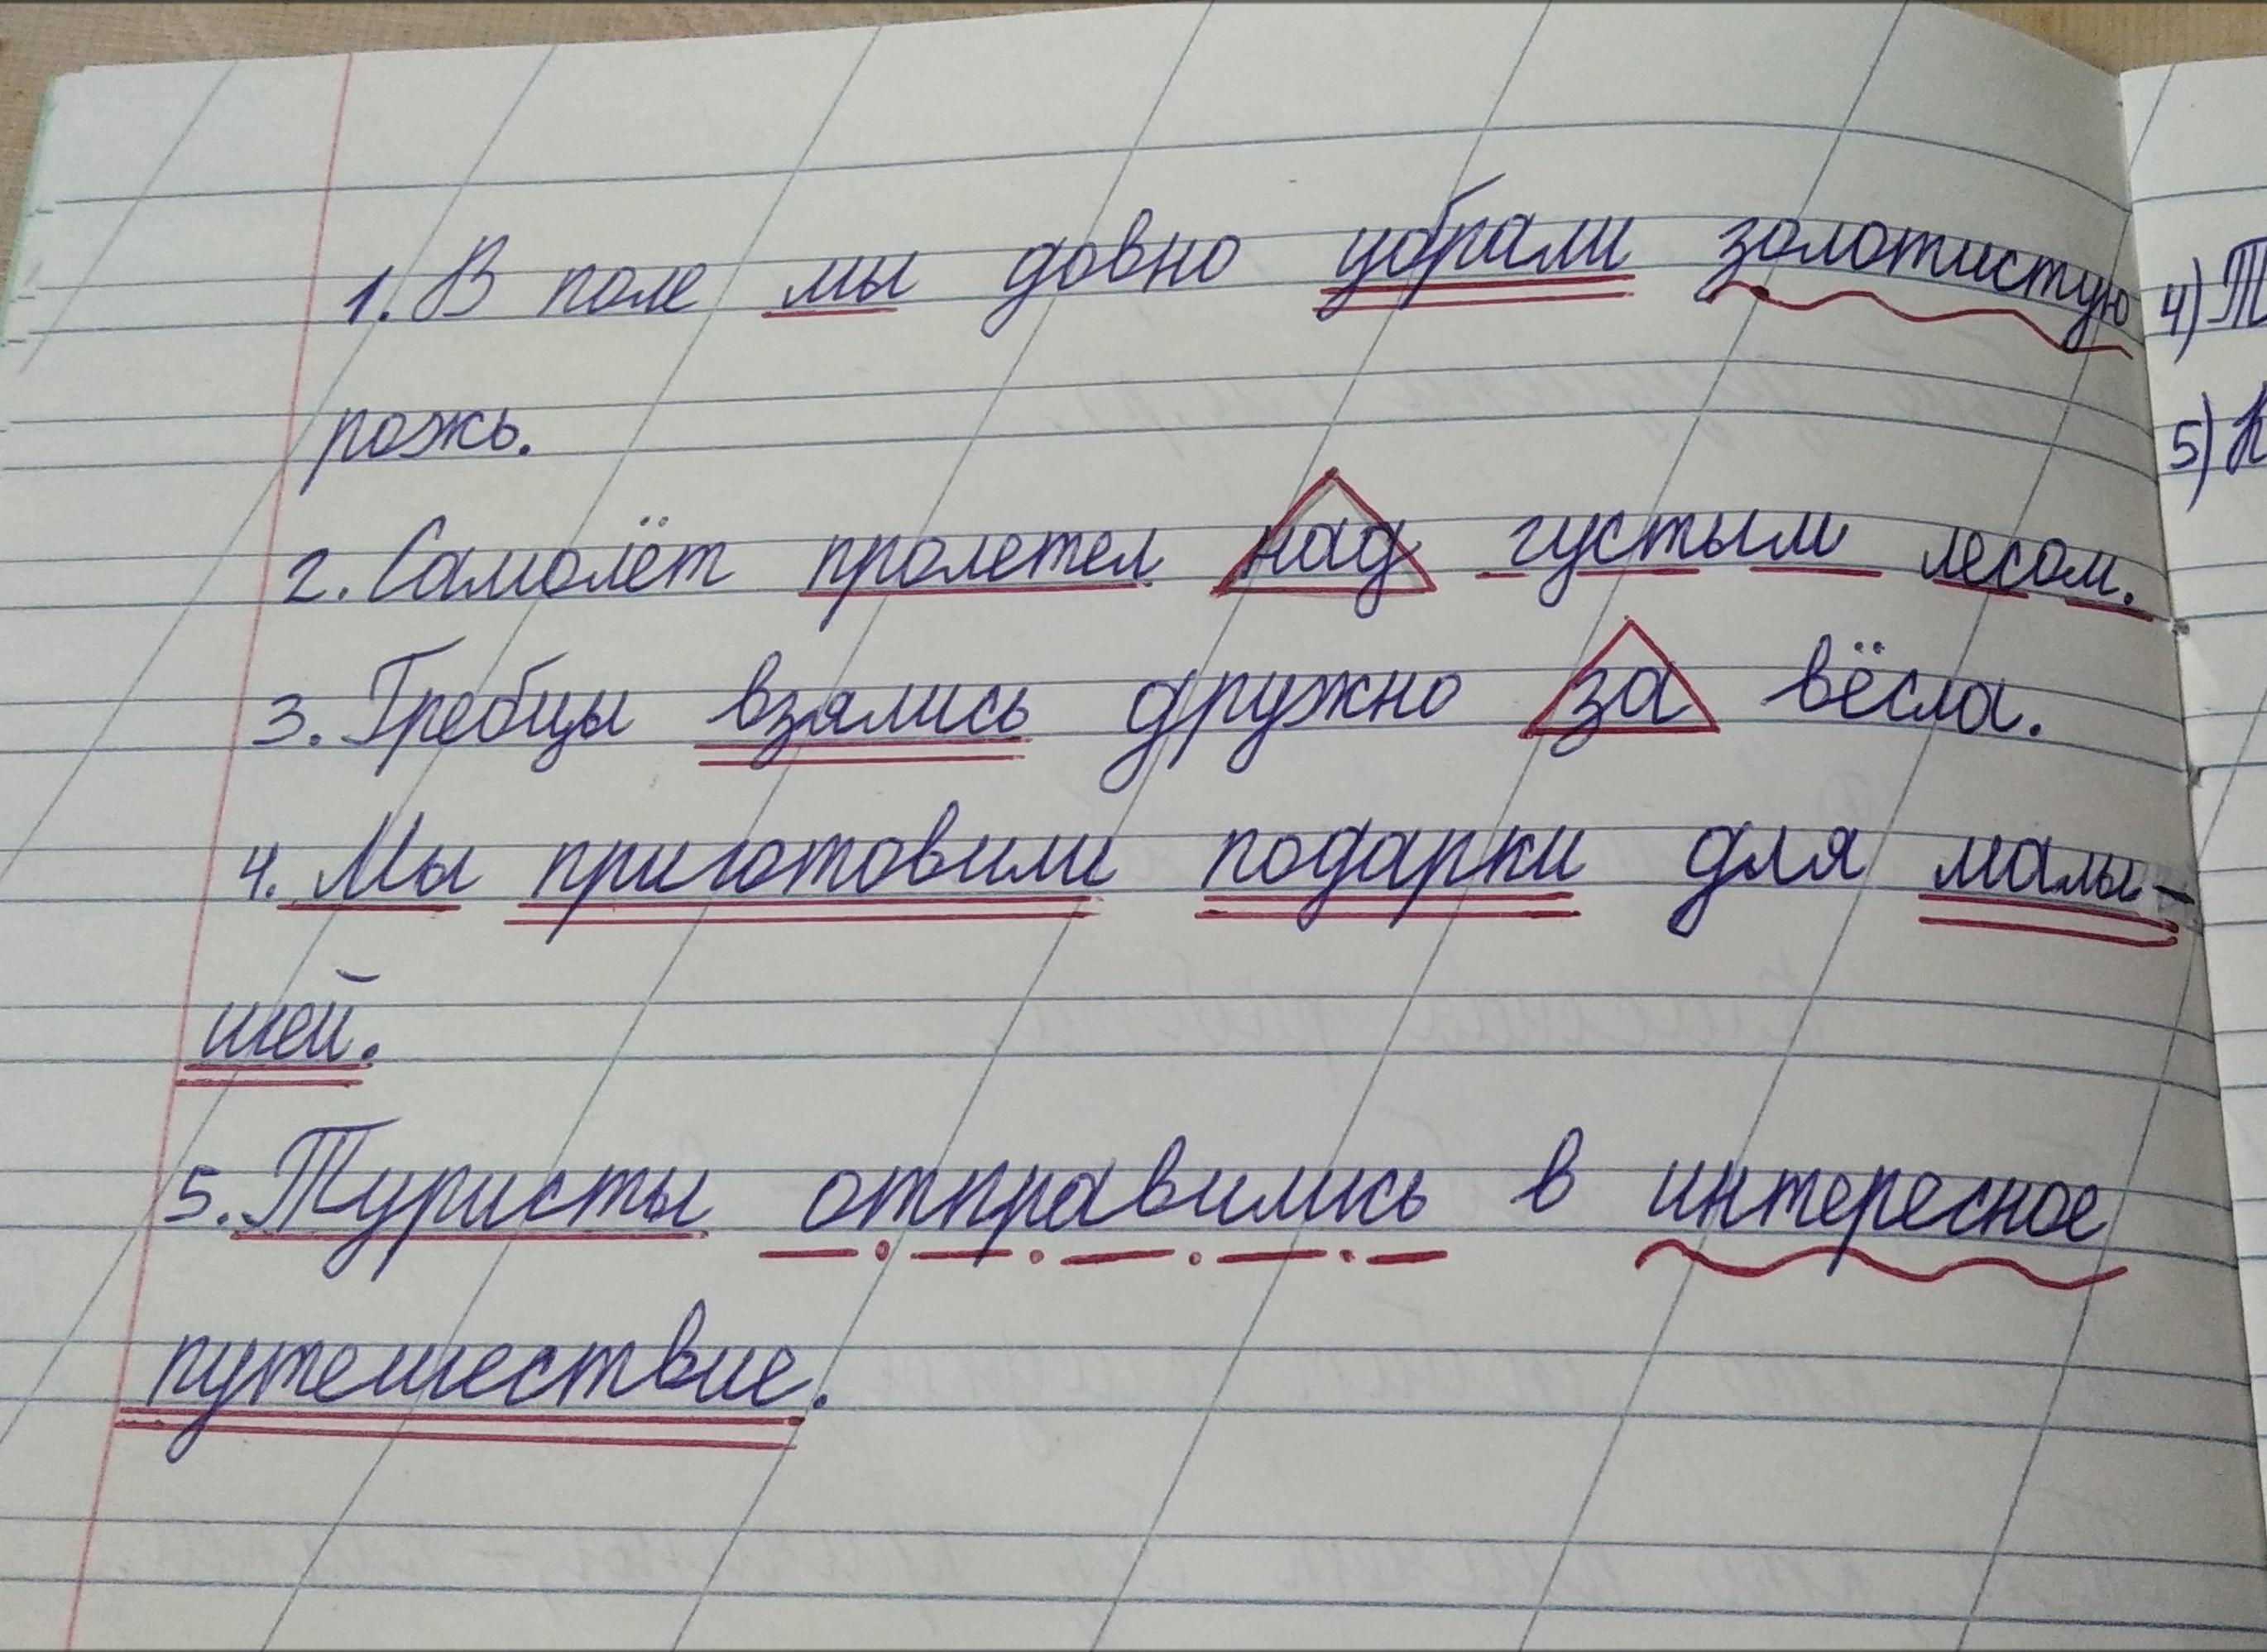 1. В поле мы довно убрали золотистую
рожь.
2. Самолёт пролетел над густым лесом.
3. Гребцы взялись дружно за вёсла.
4. Мы приготовили подарки для малы-
шей.
5. Туристы отправились в интересное
путешествие.
4) Т
5) К